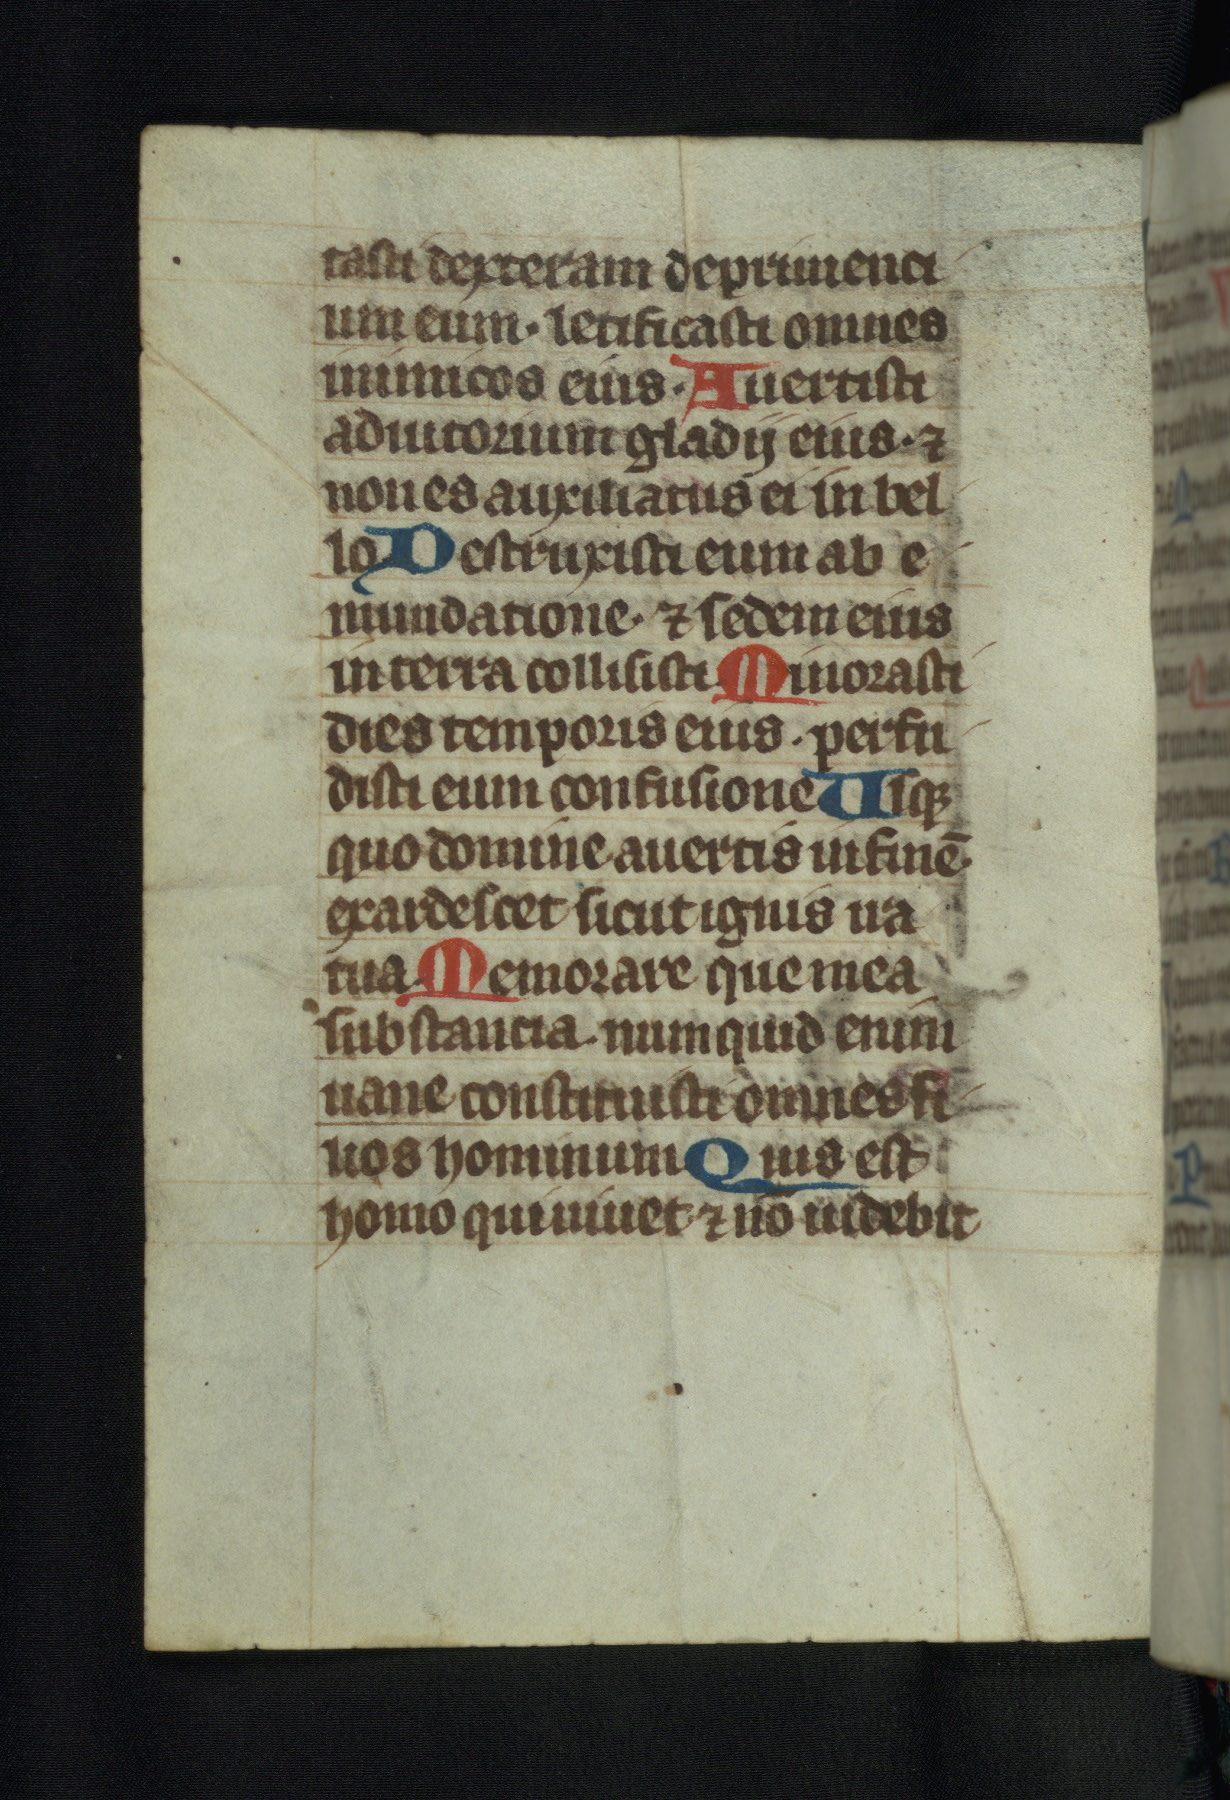 tasti dexteram deprimenti
um eum· letificasti omnes
inimicos eius· Auertisti
adiutorium gladij eius· ⁊
non es auxiliatus ei in bel
lo Destruxisti eum ab e
mundatione· ⁊ sedem eius
in terra collisisti· Minorasti
dies temporis eius· perfu
disti eum confusione Usqꝫ
quo domine auertis in finē·
exardescet sicut ignis ira
tua· Memorare que mea
substancia· numquid enim
uane constituisti omnes fi
lios hominum Quis est
homo qui uiuet ⁊ nō uidebit